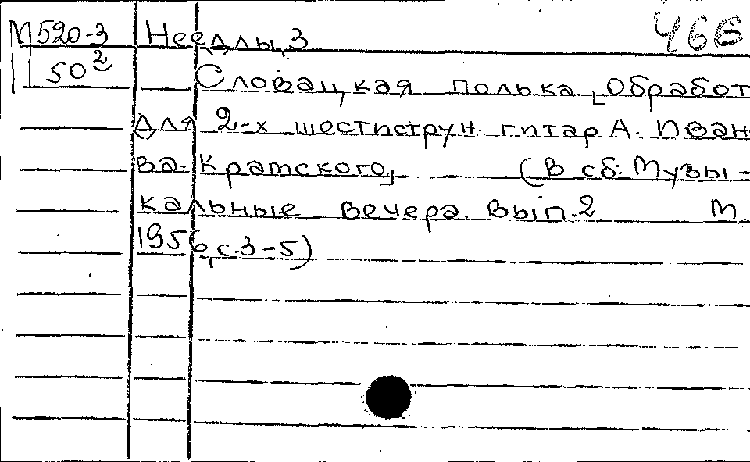 М520-3 Неедлы, З 466
50² Словацкая полька [Обработ
для 2-х шестиструн. гитар А. Иван
ва-Крамского] (В сб: Музы-
кальные вечера. Вып. 2 М
1956, с. 3-5)